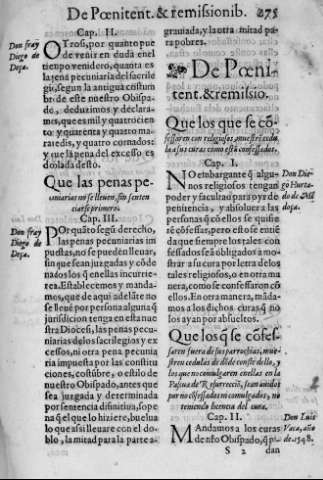 De Pœnitent. & remissionib. 275
Cap. II.
Don fray
Diego de
Deça.
OTrosi, por quanto pue
de venir en duda enel
tiempo venidero, quanta es
la pena pecuniaria del sacrile
gio, segun la antigua costum
bre de este nuestro Obispa
do, deduzimos y declara-
mos, que es mil y quatrocien
to: y quarenta y quatro ma
rauedis, y quatro cornados:
y que la pena del excesso es
doblada desto.
Que las penas pe-
cuniarias no se lleuen, sin senten
ciarse primero.
Cap. III.
Don fray
Diego de
Deça.
POr quãto segũ derecho,
las penas pecuniarias im
puestas, no se pueden lleuar,
sin que sean juzgadas y cõde
nados los q̃ en ellas incurrie-
rẽ. Establecemos y manda-
mos, que de aqui adelãte no
se lleuẽ por persona alguna q̃
jurisdicion tenga en esta nue
stra Diocesi, las penas pecu-
niarias de los sacrilegios y ex
cessos, ni otra pena pecunia
ria impuesta por las constitu
ciones, costũbre, o estilo de
nuestro Obispado, antes que
sea juzgada y determinada
por sentencia difinitiua, so pe
na q̃ el que lo hiziere, buelua
lo que assi lleuare con el do-
blo, la mitad para la parte a-
grauiada, y la otra mitad pa
ra pobres.
De Pœni-
tent. & remissio.
Que los que se cõ-
fessaren con religiosos, muestrẽ cedu
la a sus curas como estã confessados.
Cap. I.
Don Die-
go Hurta-
do de Mẽ
doça.
NO embargante q̃ algu-
nos religiosos tengan
poder y facultad para oyr de
penitencia, y absoluer a las
personas q̃ cõ ellos se quisie
rẽ cõfessar, pero esto se entiẽ
de que siempre los tales con
fessados seã obligados a mos
trar a su cura por letra de los
tales religiosos, o en otra ma
nera, como se confessaron cõ
ellos. En otra manera, mãda
mos a los dichos curas, q̃ no
los ayan por absueltos.
Que los q̃ se cõfes-
saren fuera de sus parrochias, mue-
stren cedulas de dõde conste dello, y
los que no comulgaren en ellas en la
Pascua de Resurrecciõ, sean auidos
por no cõfessados ni comulgados, no
teniendo licencia del cura.
Cap. II.
Don Luis
Vaca, año
de 1548.
MAndamos a los curas
de nro Obispado, q̃ pi-
S 2 dan